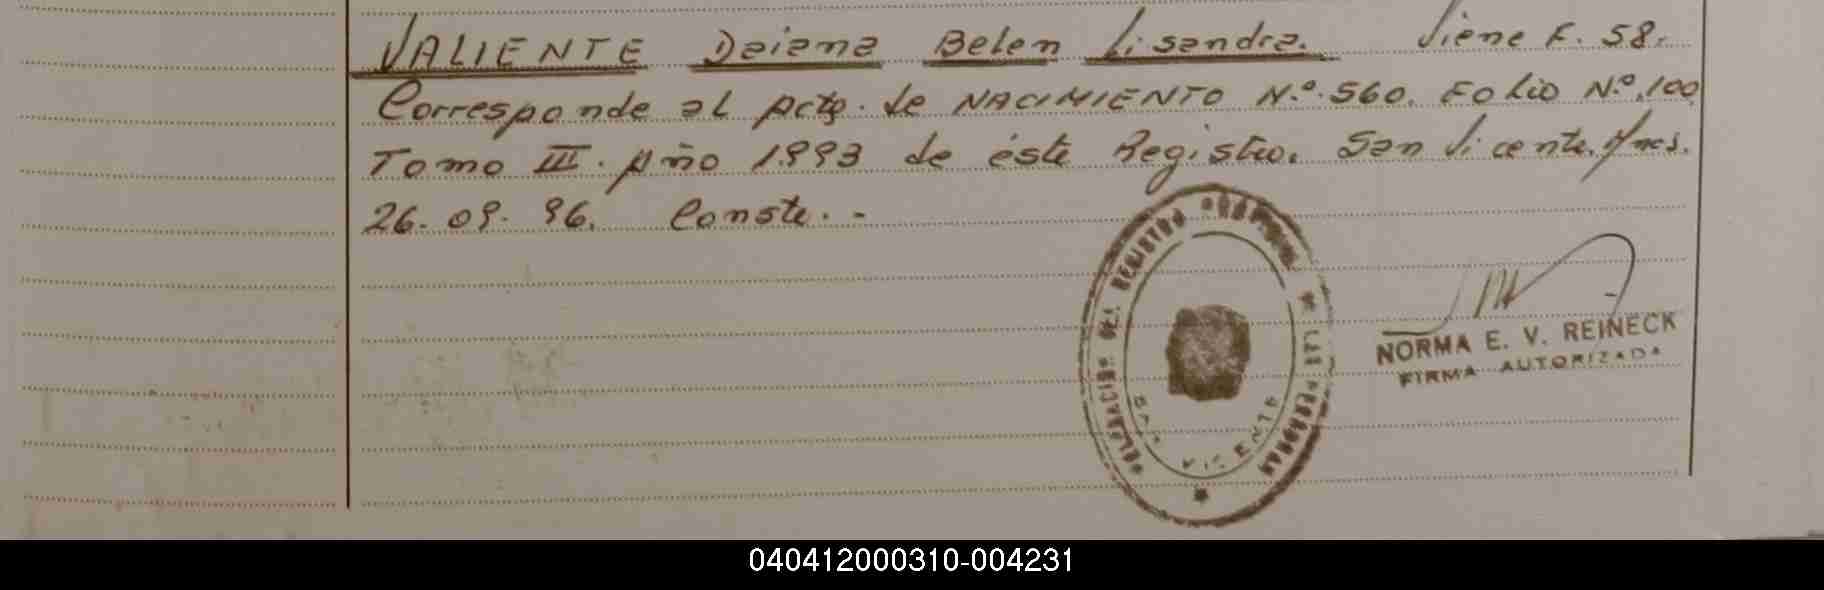 VALIENTE Daiana Belen Lisandra. Viene F. 58.
Corresponde al Acta. de NACIMIENTO N.º 560. Folio N.º 100
Tomo III. Año 1993 de éste Registro. San Vicente. Mnes.
26. 09. 96. Conste. -
DELEGACION DEL REGISTRO PROVINCIAL DE LAS PERSONAS
SAN VICENTE
NORMA E. V. REINECK
FIRMA AUTORIZADA
040412000310-004231